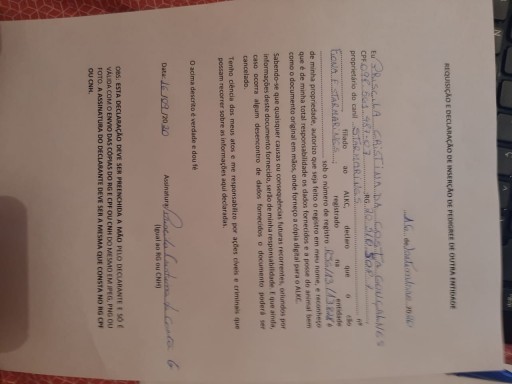 REQUISIÇÃO E DECLARAÇÃO DE INSERÇÃO DE PEDIGREE DE OUTRA ENTIDADE
16
Eu PRISCILLA CRISTINA DA COSTA GONÇALVES
CPF RG nº
proprietário do canil STORMARINES
filiado ao ALKC, declaro que o cão
registrado na entidade
sob o número de registro
de minha propriedade, autorizo que seja feito o registro em meu nome, e reconheço
que é de minha total responsabilidade os dados fornecidos e a posse do animal bem
como o documento original em mãos, onde forneço a cópia digital para o ALKC.
Sabendo-se que quaisquer causas ou consequências futuras recorrentes, oriundos por
informações deste documento fornecido, serão de minha responsabilidade. E que ainda,
caso ocorra algum desencontro de dados fornecidos o documento poderá ser
cancelado.
Tenho ciência dos meus atos e me responsabilizo por ações cíveis e criminais que
possam recorrer sobre as informações aqui declaradas.
O acima descrito é verdade e dou fé
Data: 16/09/2020 Assinatura:
(igual ao RG ou CNH)
OBS: ESTA DECLARAÇÃO DEVE SER PREENCHIDA A MÃO PELO DECLARANTE E SÓ É
VÁLIDA COM O ENVIO DAS CÓPIAS DO RG E CPF OU CNH DO MESMO EM JPEG, PNG OU
FOTO. A ASSINATURA DO DECLARANTE DEVE SER A MESMA QUE CONSTA NO RG CPF
OU CNH.